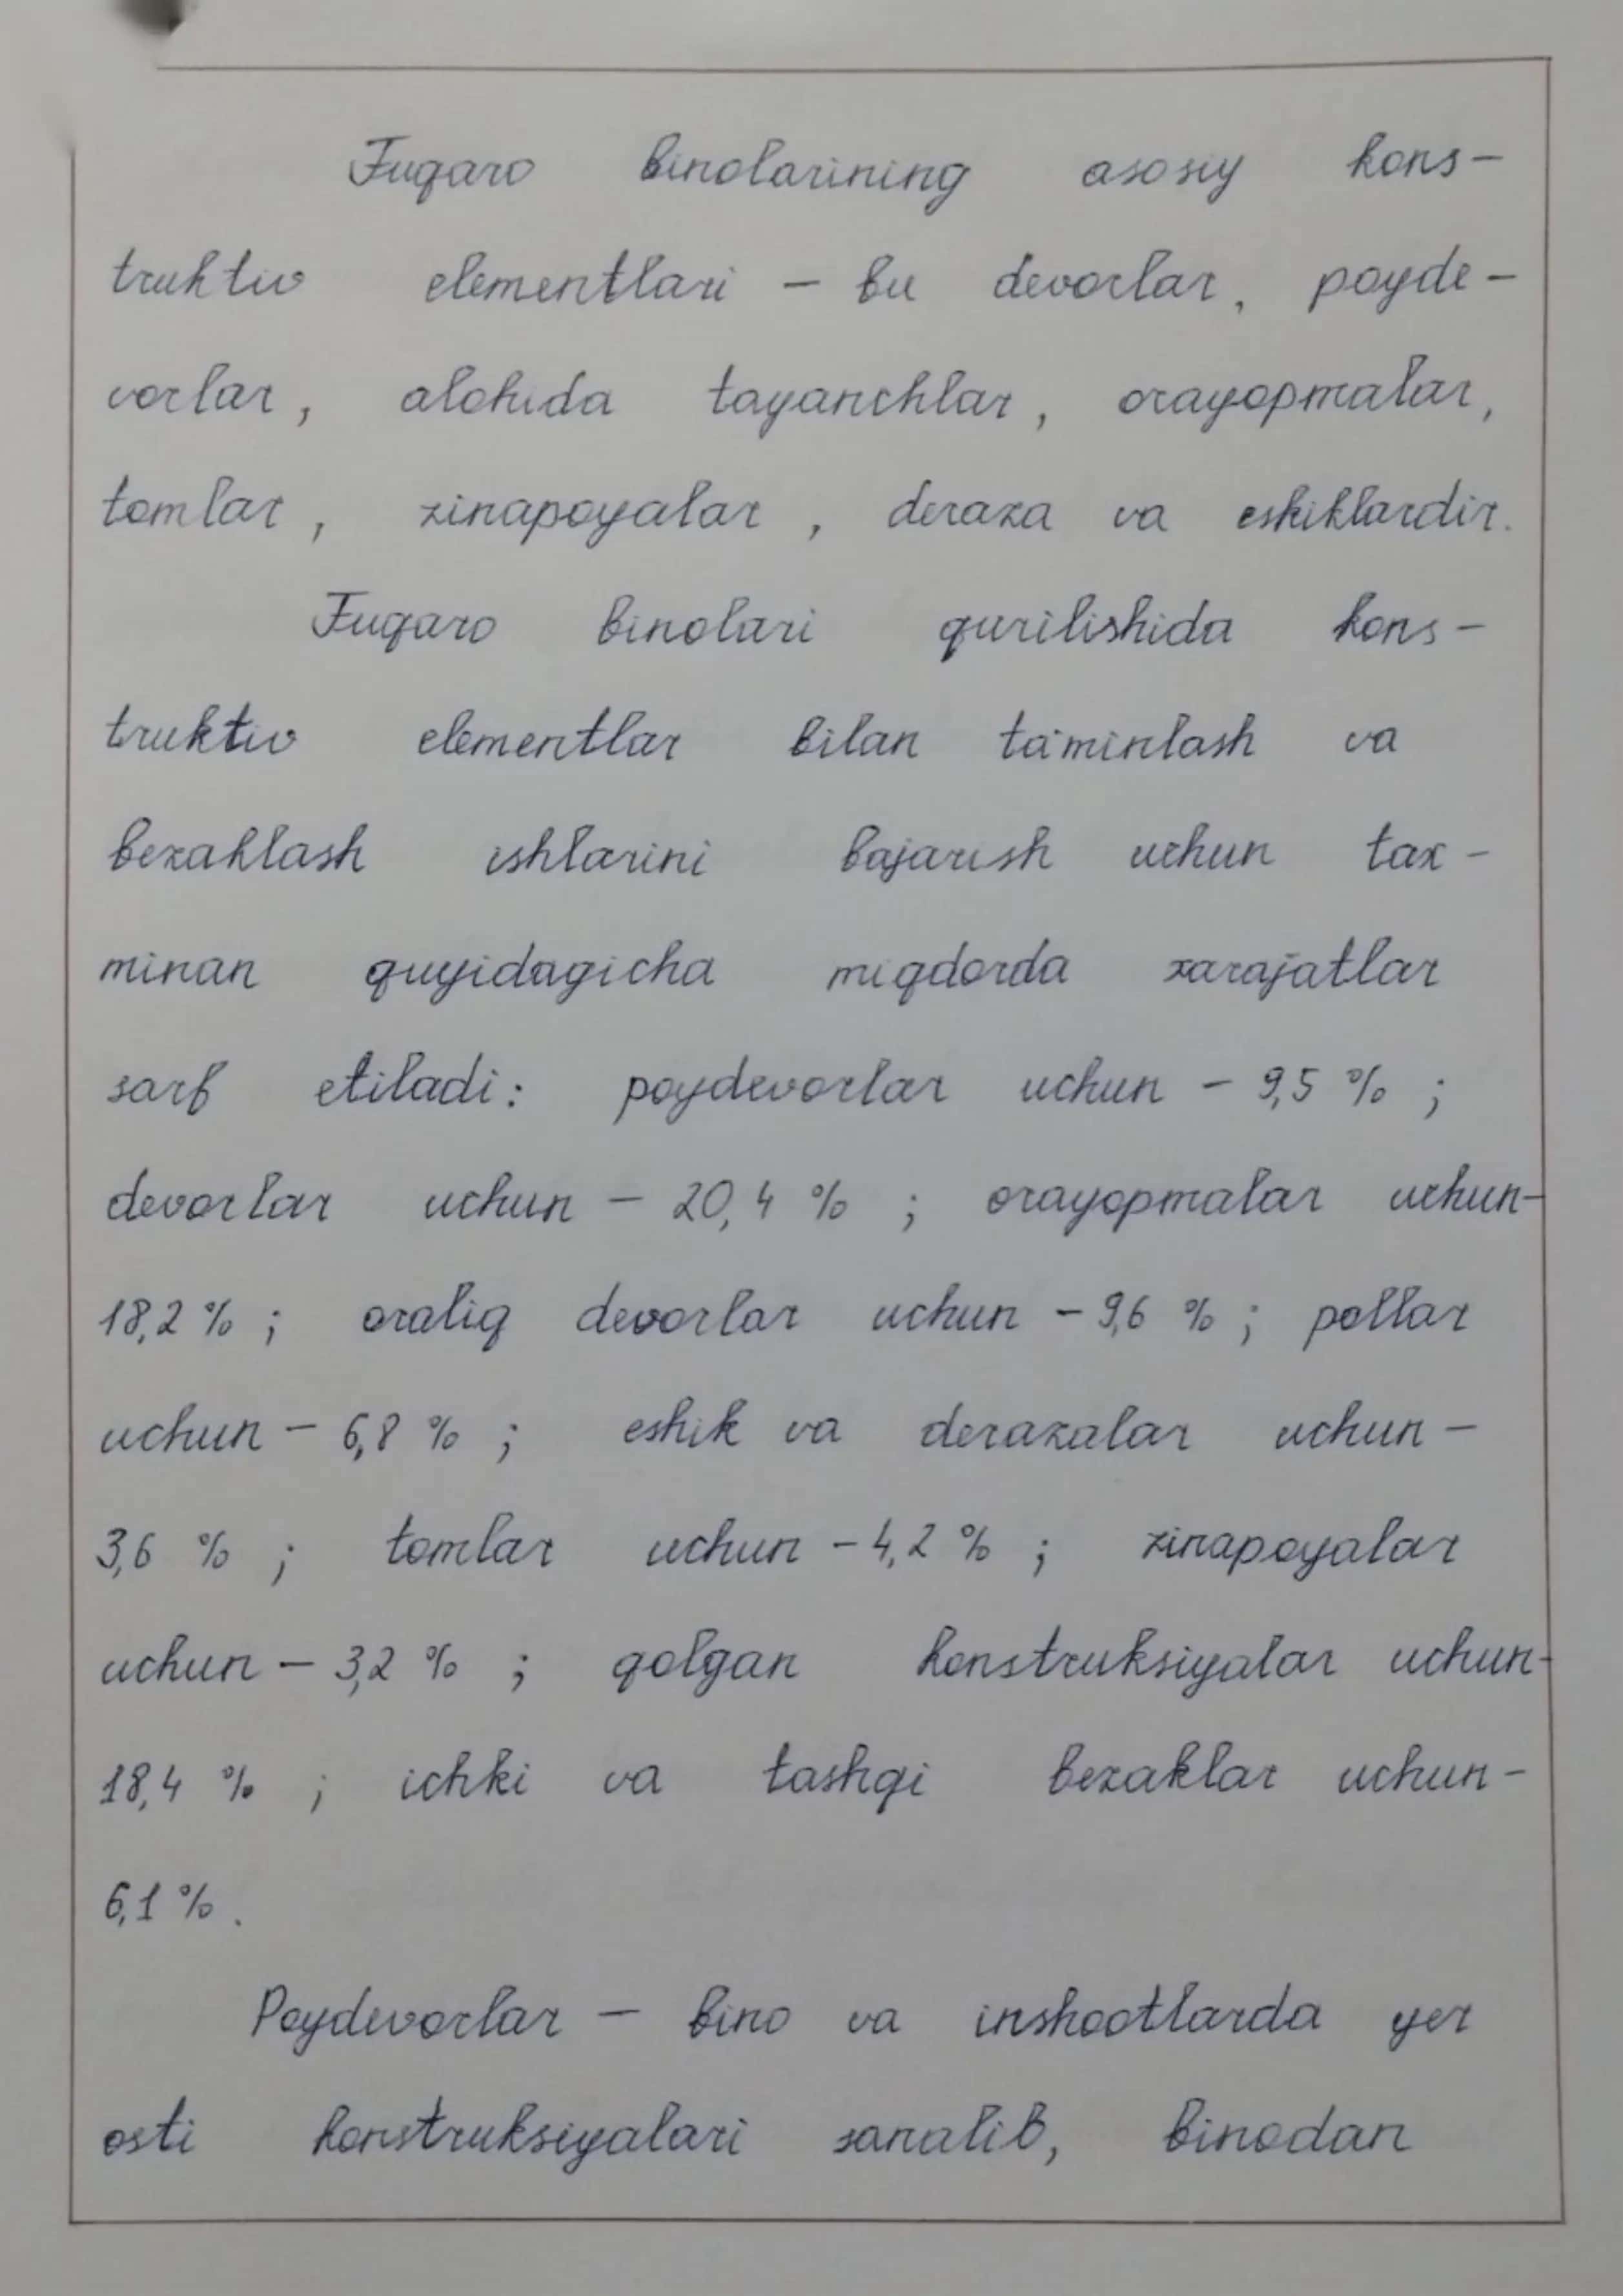 Fuqaro binolarining asosiy kons-
truktiv elementlari - bu devorlar, poyde-
vorlar, alohida tayanchlar, orayopmalar,
tomlar, zinapoyalar, deraza va eshiklardir.
Fuqaro binolari qurilishida kons-
truktiv elementlar bilan ta'minlash va
bezaklash ishlarini bajarish uchun tax-
minan quyidagicha miqdorda xarajatlar
sarf etiladi: poydevorlar uchun - 9,5 % ;
devorlar uchun - 20,4 % ; orayopmalar uchun-
18,2 % ; oraliq devorlar uchun - 9,6 % ; pollar
uchun - 6,8 % ; eshik va derazalar uchun -
3,6 % ; tomlar uchun - 4,2 % ; zinapoyalar
uchun - 3,2 % ; qolgan konstruksiyalar uchun-
18,4 % ; ichki va tashqi bezaklar uchun -
6,1 %.
Poydevorlar - bino va inshootlarda yer
osti konstruksiyalari sanalib, binodan